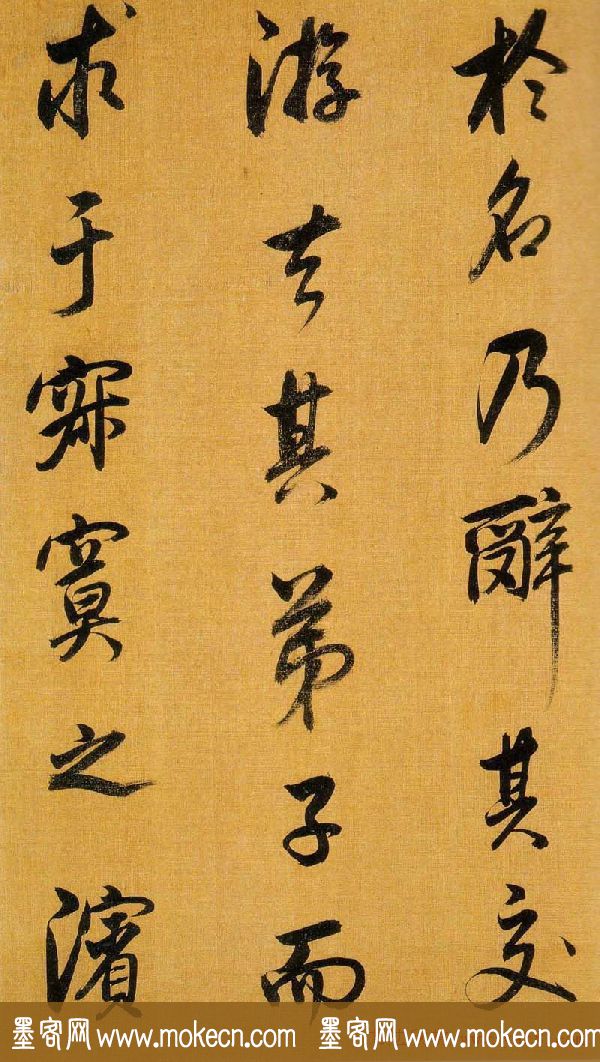 於名乃辭其交
游去其弟子而
求于寂寞之濱
墨客网 www.mokecn.com 墨客网 www.mokecn.com